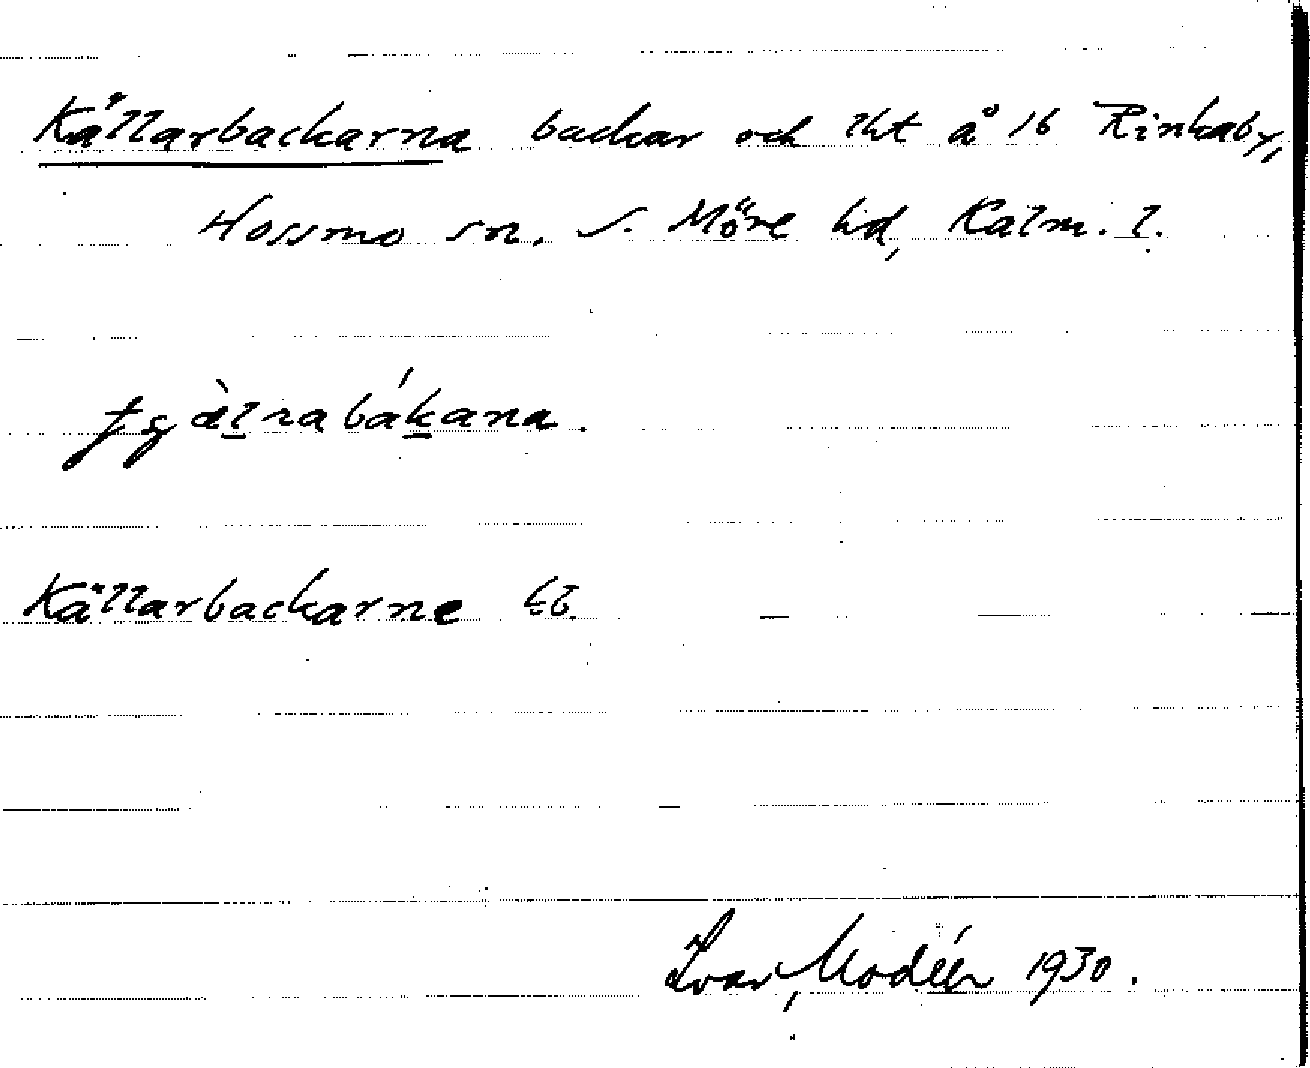 Källarbackarna backar och lht å 16 Rinkaby,
Hossmo sn, S. Möre hd, Kalm. l.
Källarbackarne
Ivar Modéer 1930.